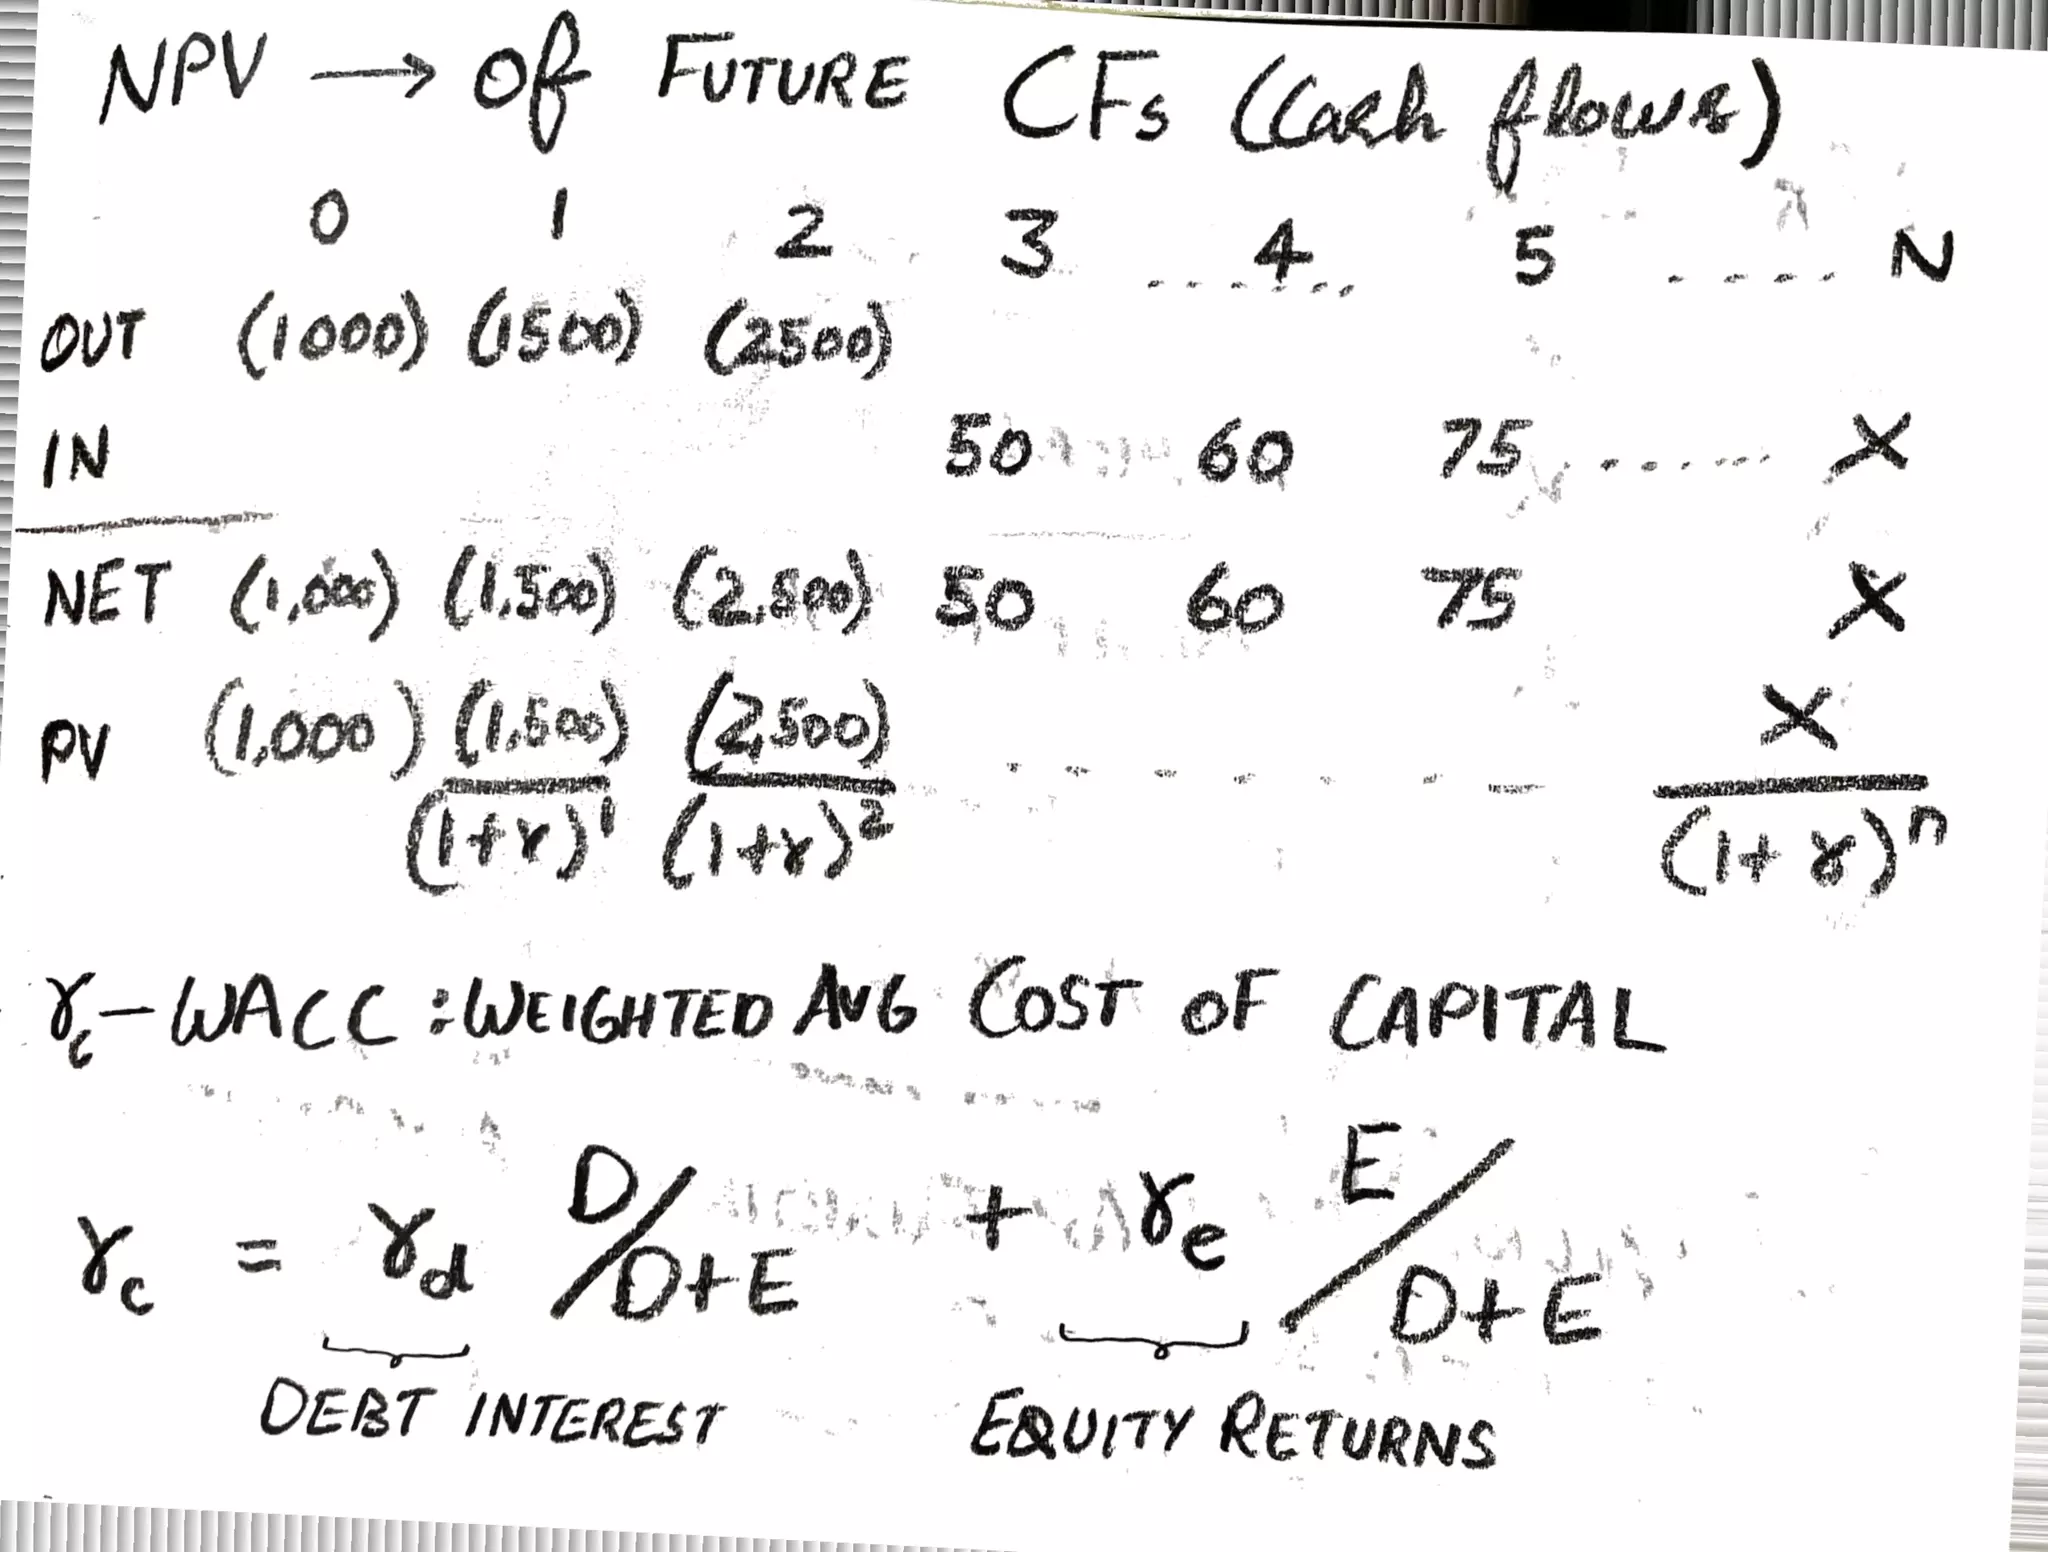 NPV → of FUTURE CFs (Cash flows)
0 1 2 3 ...... 4 .. 5 ..... N
OUT (1000) (1500) (2500)
IN 50 60 75 ....... X
NET (1,000) (1,500) (2,500) 50 60 75 X
PV (1,000) (1,500)/(1+r)¹ (2,500)/(1+r)² - - - - - - - X/(1+r)ⁿ
r_c - WACC : WEIGHTED AVG COST OF CAPITAL
r_c = r_d D/D+E + r_e E/D+E
DEBT INTEREST EQUITY RETURNS